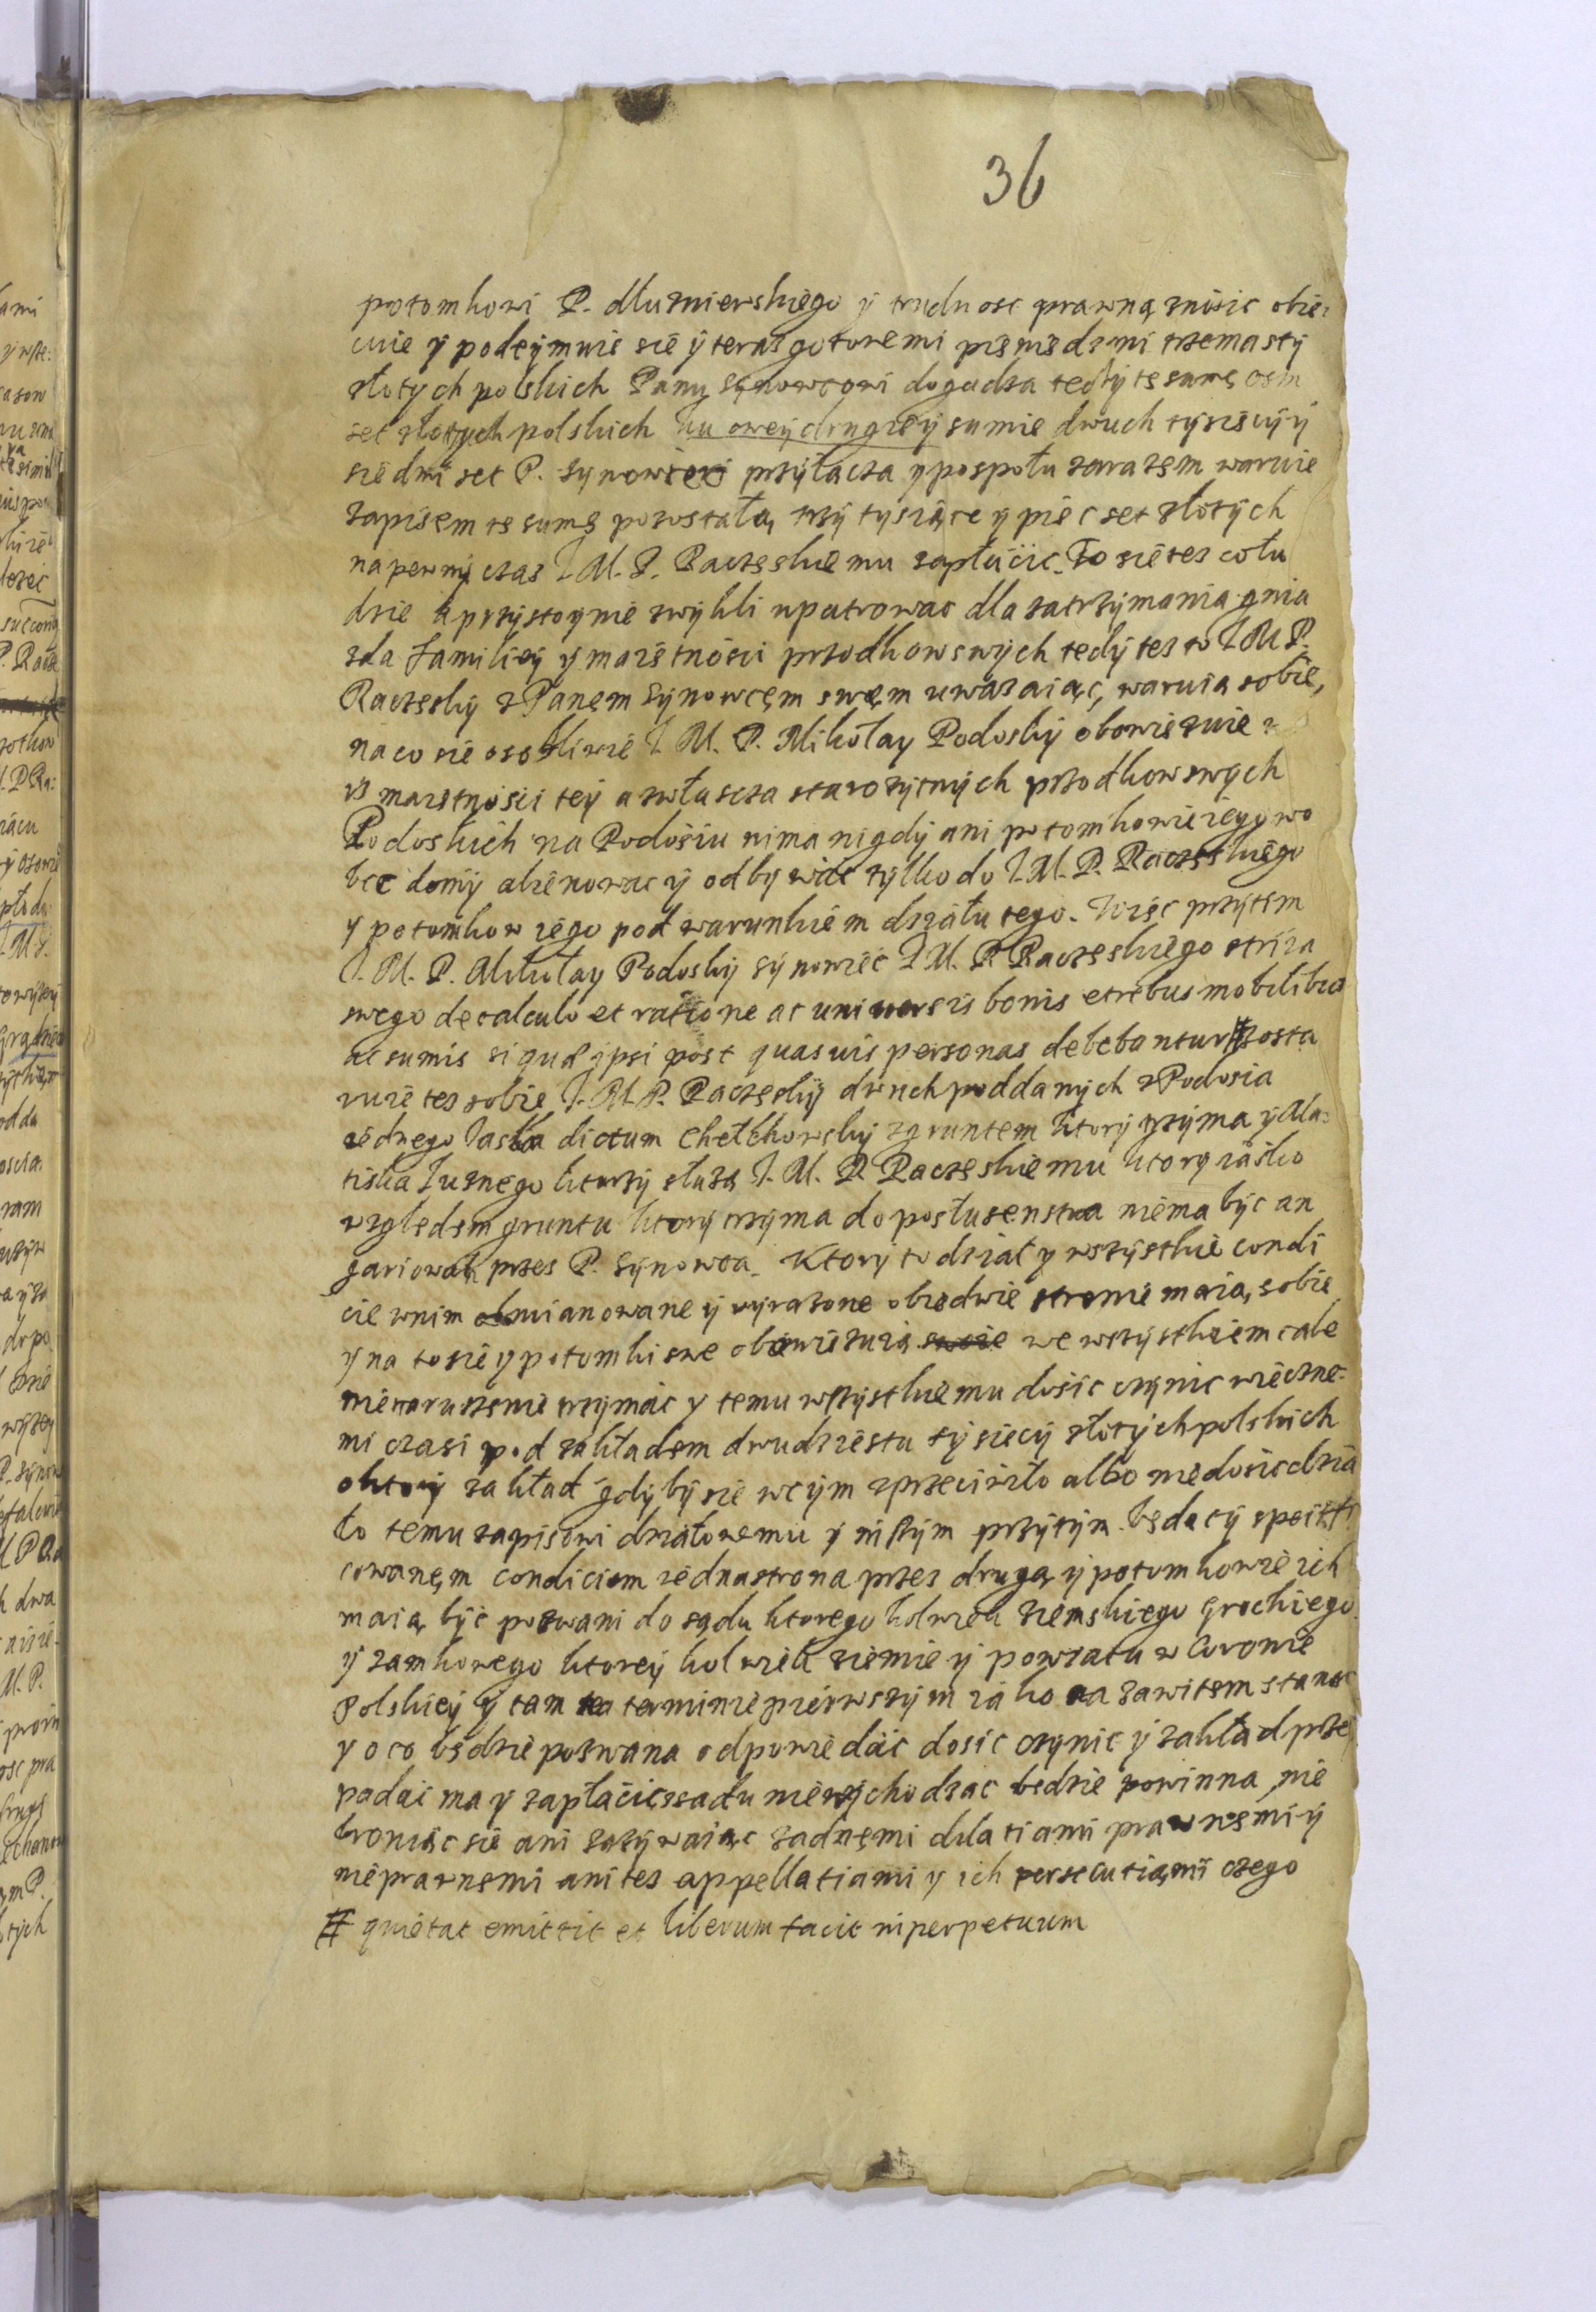 36
potomkowi P. dłuzniewskiego y trudnosc prawną znosic obie:
cuie y podeymuie sie y teraz gotowemi pieniedzmi trzema sty
złotych polskich Panu Synowcowi dogadza tedy te sumę osm
set złotych polskich ku owey drugiey sumie dwuch tysięcy y
siedmi set P. Synowiec przyłącza y pospołu zarazem waruie
zapisem te sumę pozostałą trzy tysiące y pięc set złotych
na pewny czas I. M. P. Raczeskiemu zapłacic. To sie tez co lu
dzie przystoynie zwykli upatrowac dla zatrzymania gnia
zda familiey y maiętnosci przodkow swych tedy tez to I M P.
Raczesky z Panem Synowcem swem uwazaiąc, waruią sobie,
na co sie osobliwie I. M. P. Mikołay Podosky obowięzuie
iz maiętnosci tey a zwłascza starozytnych przodkow swych
Podoskich na Podosiu nima nigdy ani potomkowie iego wo
bce domy alienowac y odbywac tylko do I. M. P. Raczeskiego
y potomkow iego pod warunkiem działu tego. Więc przytem
I. M. P. Mikołay Podosky synowiec I M. P. Raczeskiego stryia
swego de calculo et ratione ac universis bonis et rebus mobilibus
ac sumis si quae ipsi post quasuis personas debebantur # zosta
wuie tez sobie I. M. P. Raczesky dwuch poddanych z Podosia
iednego Jaska dictum Chełchowsky z gruntem ktory trzyma y Ma:
tiska Luznego ktorzy słuzą I. M. P. Raczeskiemu ktory iasko
względem gruntu ktory trzyma do posłuzenstwa niema byc an
gariowan przez P. Synowca. Ktory to dział y wszystkie condi
cie wnim mianowane y wyrazone obiedwie stronie maią sobie
y na to sie y potomki swe obowięzuią we wszystkiem cale
nienaruszenie trzymac y temu wszystkiemu dosic czynic wieczne:
mi czasi pod zakładem dwudziestu tysiecy złotych polskich
o ktory zakład gdyby sie wczym zprzeciwiło albo niedosic dzia
ło temu zapisowi działowemu y inszym przytym będący specifi
cowanem condiciom iedna strona przez drugą y potomkowie ich
maią byc pozwani do sądu ktorego kolwiek ziemskiego grockiego
y zamkowego ktorey kolwiek ziemie y powiatu w Coronie
Polskiey y tam na terminie pierwszym iako na zawitem stanac
y o co będzie pozwana odpowiedac dosic czynic y zakład prze
padac ma y zapłacic z sadu niewychodzac bedzie powinna nie
broniąc sie ani zazywaiąc zadnemi dilatiami prawnemi y
nieprawnemi ani tez appellatiami y ich persecutiami czego
# quietat emittit et liberum facit in perpetuum